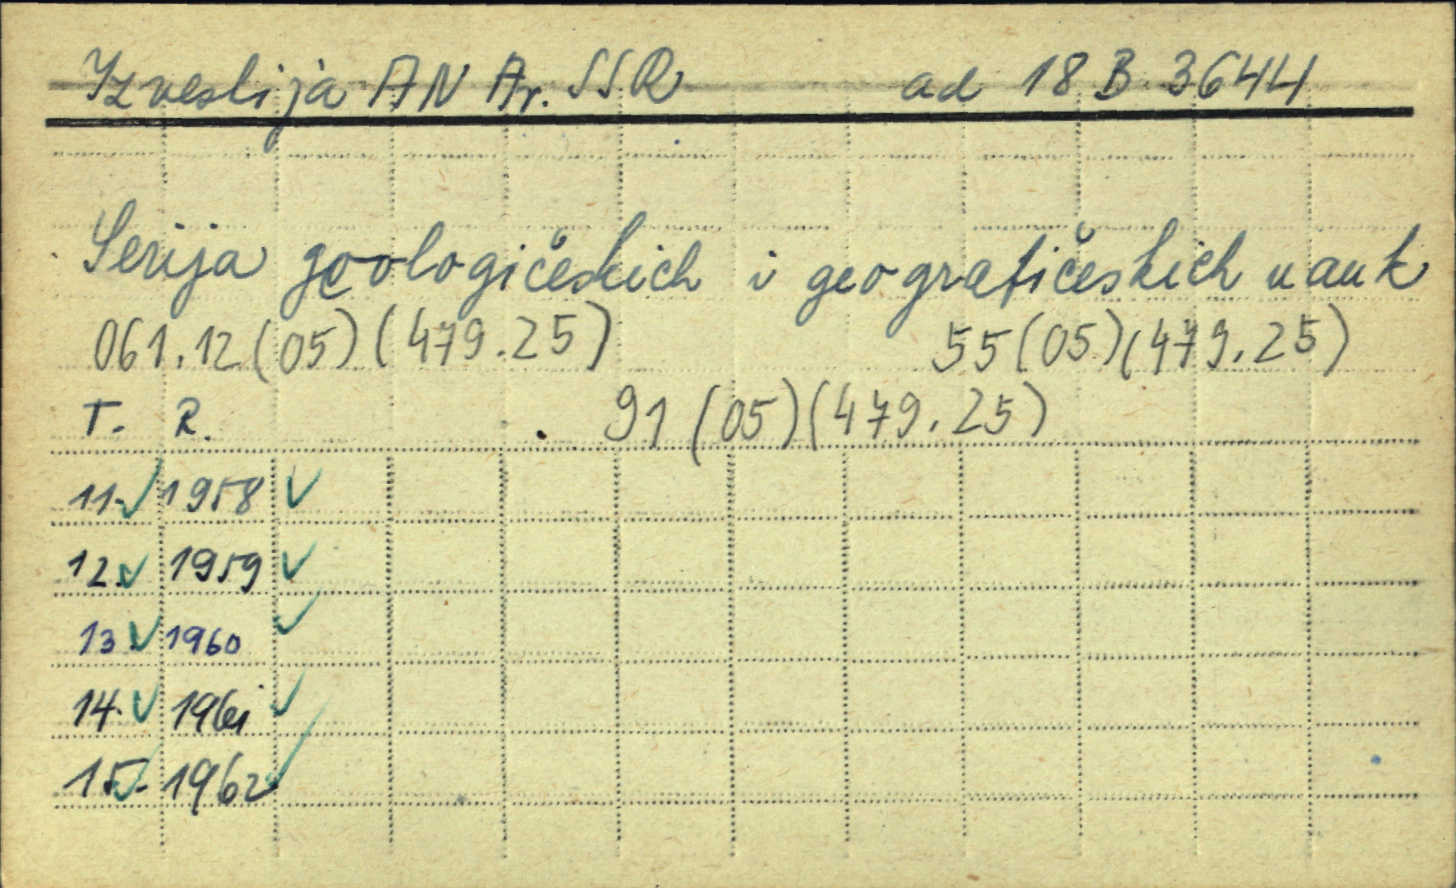 Izvestija AN Ar. SSR ad 18 B 3644
Serija geologičeskich i geografičeskich nauk
061.12(05)(479.25) 55(05)(479.25)
T. R. 91(05)(479.25)
11. ✓ 1958 ✓
12. ✓ 1959 ✓
13 ✓ 1960 ✓
14. ✓ 1961 ✓
15. ✓ 1962 ✓